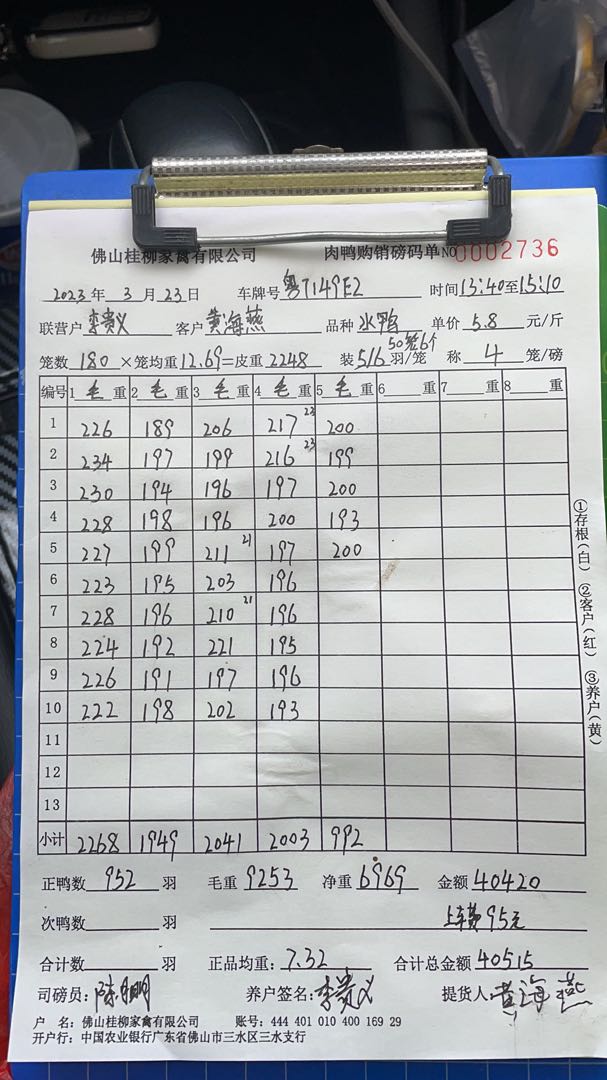 佛山桂柳家禽有限公司 肉鸭购销磅码单 NO 0002736
2023年 3月 23日 车牌号 粤T149E2 时间 13:40至15:10
联营户 李贵义 客户 黄海燕 品种 水鸭 单价 5.8 元/斤
50笼6个
笼数 180 ×笼均重 12.69=皮重 2248 装 5/6 羽/笼 称 4 笼/磅
编号 1 毛 重 2 毛 重 3 毛 重 4 毛 重 5 毛 重 6 重 7 重 8 重
1 226 189 206 217 23 200
2 234 197 199 216 23 199
3 230 194 196 197 200
4 228 198 196 200 193
5 227 199 211 21 197 200
6 223 195 203 196
7 228 196 210 21 196
8 224 192 221 195
9 226 191 197 196
10 222 198 202 193
11
12
13
小计 2268 1949 2041 2003 992
①存根(白) ②客户(红) ③养户(黄)
正鸭数 952 羽 毛重 9253 净重 6969 金额 40420
次鸭数 羽 上车费95元
合计数 羽 正品均重: 7.32 合计总金额 40515
司磅员: 养户签名: 李贵义 提货人: 黄海燕
户 名: 佛山桂柳家禽有限公司 账号: 444 401 010 400 169 29
开户行: 中国农业银行广东省佛山市三水区三水支行